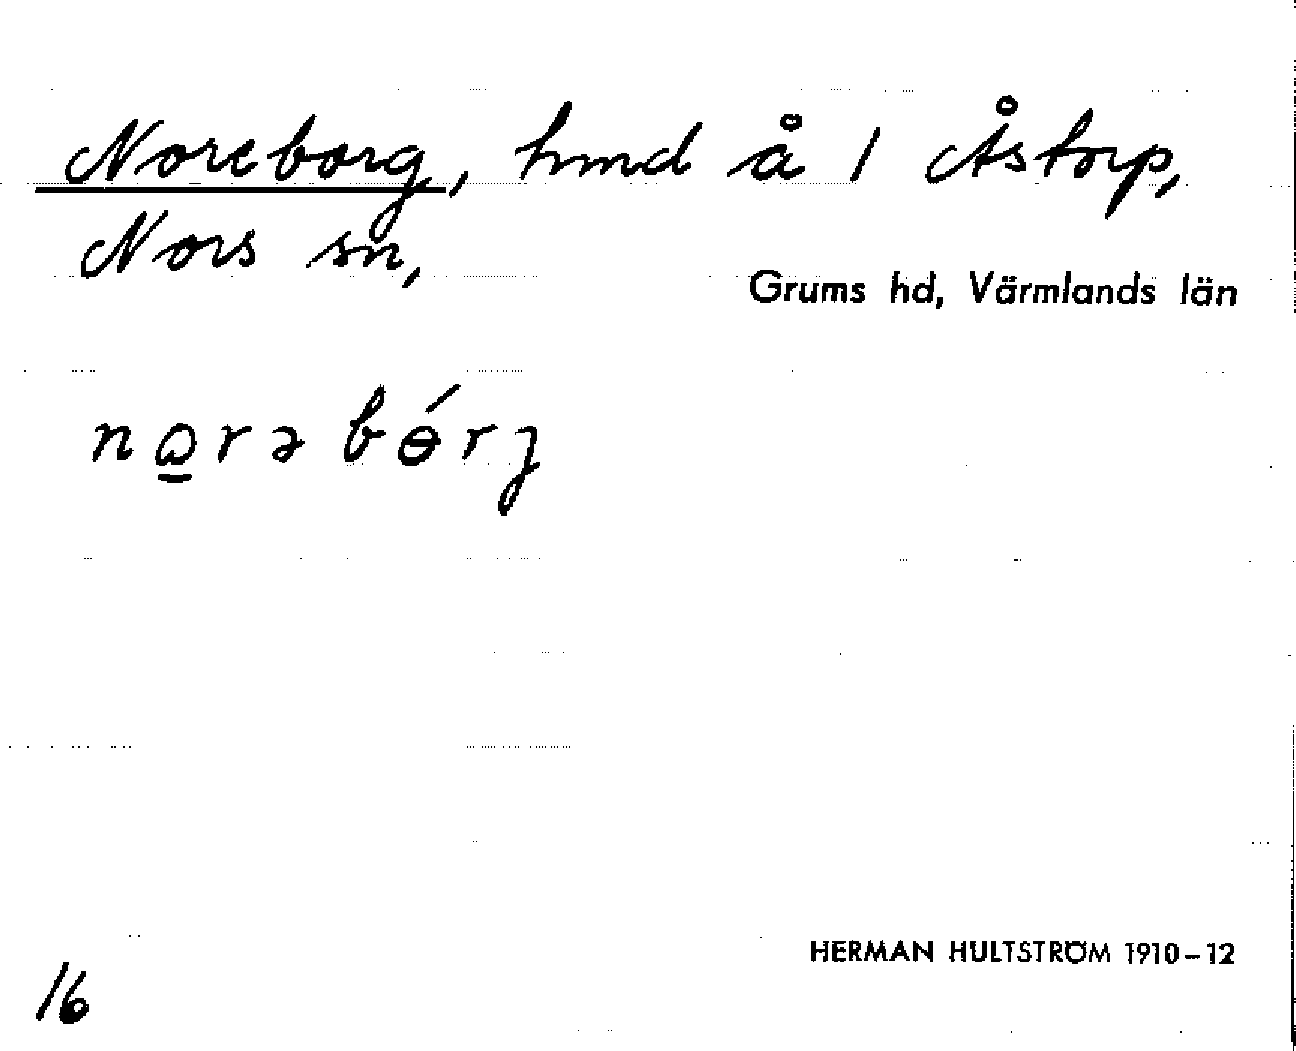 Noreborg, hmd å 1 Åstorp,
Nors sn,
Grums hd, Värmlands län
HERMAN HULTSTRÖM 1910-12
16